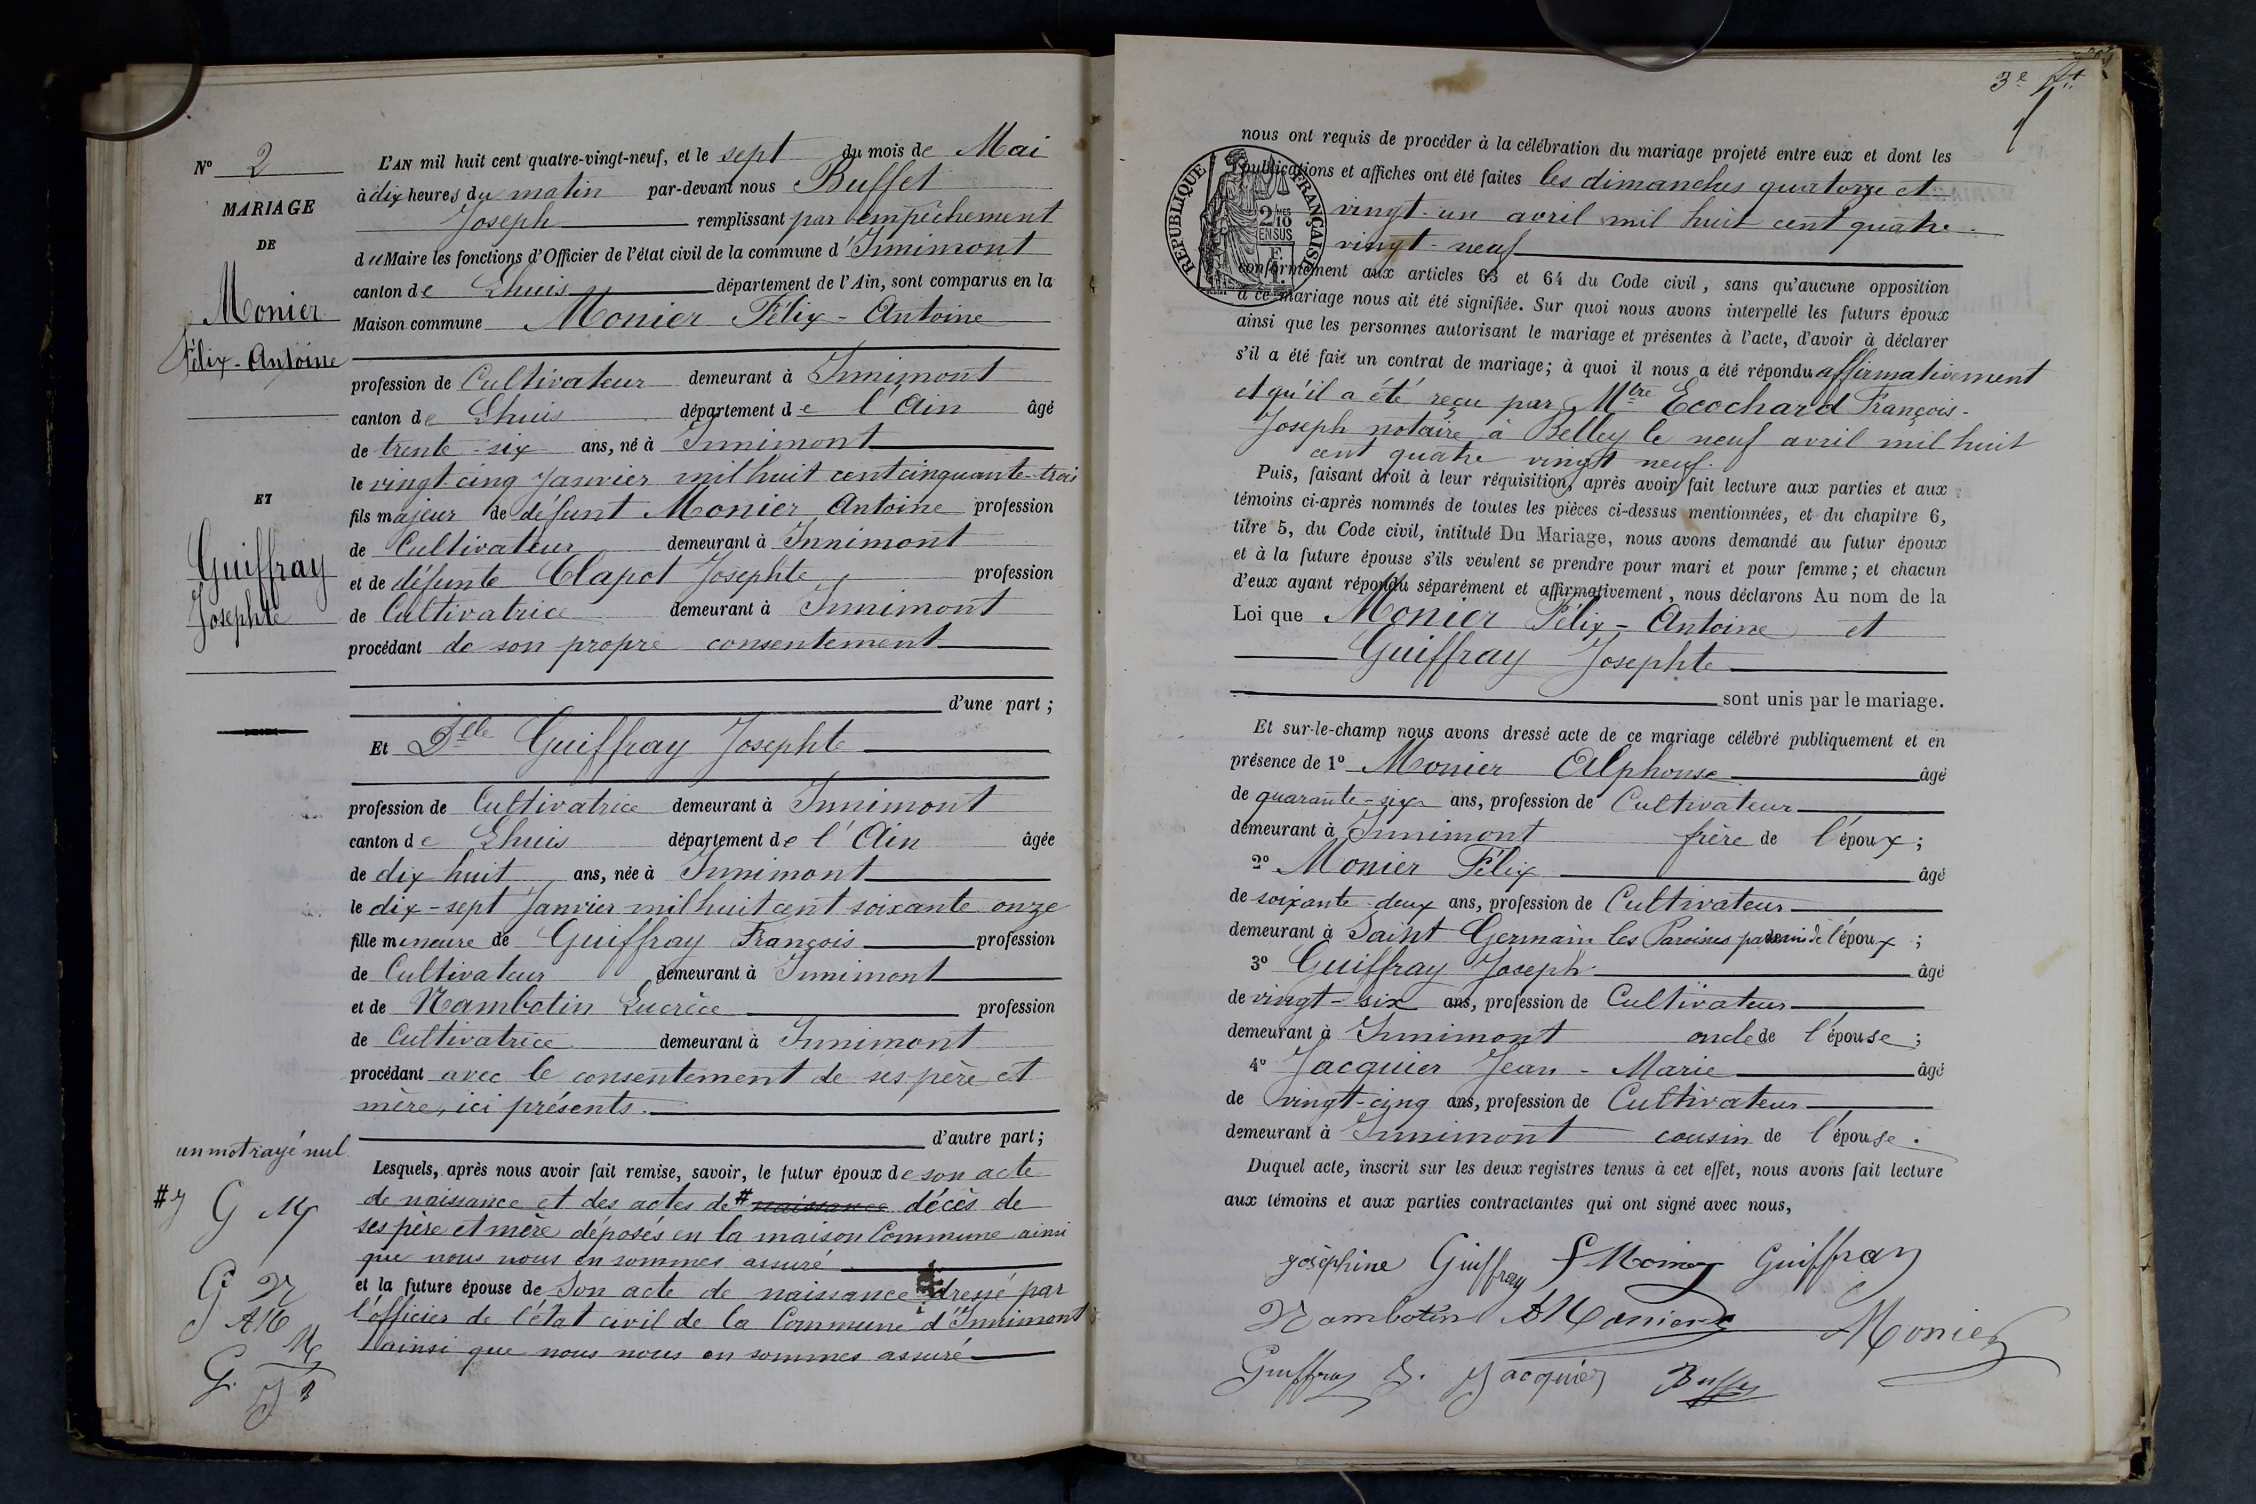 N° 2
MARIAGE
DE
Monier
Félix-Antoine
ET
Guiffray
Josephte
un mot rayé nul
G M
G N
AM
M
G.
J
L'AN mil huit cent quatre-vingt-neuf, et le sept du mois de Mai
à dix heures du matin par-devant nous Buffet
Joseph remplissant par empêchement
du Maire les fonctions d'Officier de l'état civil de la commune d'Innimont
canton de Lhuis département de l'Ain, sont comparus en la
Maison commune Monier Félix-Antoine
profession de Cultivateur demeurant à Innimont
canton de Lhuis département de l'Ain âgé
de trente-six ans, né à Innimont
le vingt-cinq Janvier mil huit cent cinquante-trois
fils majeur de défunt Monier Antoine profession
de Cultivateur demeurant à Innimont
et de défunte Clapot Josephte profession
de Cultivatrice demeurant à Innimont
procédant de son propre consentement
d'une part ;
Et Delle Guiffray Josephte
profession de Cultivatrice demeurant à Innimont
canton de Lhuis département de l'Ain âgée
de dix-huit ans, née à Innimont
le dix-sept Janvier mil huit cent soixante onze
fille mineure de Guiffray François profession
de Cultivateur demeurant à Innimont
et de Nambotin Lucrèce profession
de Cultivatrice demeurant à Innimont
procédant avec le consentement de ses père et
mère, ici présents.
d'autre part ;
Lesquels, après nous avoir fait remise, savoir, le futur époux de son acte
de naissance et des actes de # naissance décès de
ses père et mère déposés en la maison Commune ainsi
que nous nous en sommes assuré
et la future épouse de Son acte de naissance dressé par
l'officier de l'état civil de la Commune d'Innimont
ainsi que nous nous en sommes assuré
3e
RÉPUBLIQUE FRANÇAISE
2/10 MES
EN SUS
nous ont requis de procéder à la célébration du mariage projeté entre eux et dont les
publications et affiches ont été faites les dimanches quatorze et
vingt-un avril mil huit cent quatre-
vingt-neuf
conformément aux articles 63 et 64 du Code civil, sans qu'aucune opposition
à ce mariage nous ait été signifiée. Sur quoi nous avons interpellé les futurs époux
ainsi que les personnes autorisant le mariage et présentes à l'acte, d'avoir à déclarer
s'il a été fait un contrat de mariage ; à quoi il nous a été répondu affirmativement
et qu'il a été reçu par Mtre Ecochard François-
Joseph notaire à Belley le neuf avril mil huit
cent quatre vingt neuf.
Puis, faisant droit à leur réquisition, après avoir fait lecture aux parties et aux
témoins ci-après nommés de toutes les pièces ci-dessus mentionnées, et du chapitre 6,
titre 5, du Code civil, intitulé Du Mariage, nous avons demandé au futur époux
et à la future épouse s'ils veulent se prendre pour mari et pour femme ; et chacun
d'eux ayant répondu séparément et affirmativement, nous déclarons Au nom de la
Loi que Monier Félix-Antoine et
Guiffray Josephte
sont unis par le mariage.
Et sur-le-champ nous avons dressé acte de ce mariage célébré publiquement et en
présence de 1° Monier Alphonse âgé
de quarante-six ans, profession de Cultivateur
demeurant à Innimont frère de l'époux ;
2° Monier Félix âgé
de soixante-deux ans, profession de Cultivateur
demeurant à Saint Germain les Paroises parrain de l'époux ;
3° Guiffray Joseph âgé
de vingt-six ans, profession de Cultivateur
demeurant à Innimont oncle de l'épouse ;
4° Jacquier Jean-Marie âgé
de vingt-cinq ans, profession de Cultivateur
demeurant à Innimont cousin de l'épouse.
Duquel acte, inscrit sur les deux registres tenus à cet effet, nous avons fait lecture
aux témoins et aux parties contractantes qui ont signé avec nous,
Joséphine Guiffray F Monier Guiffray
Nambotin A Monier Monier
Guiffray J. Jacquier Buffet